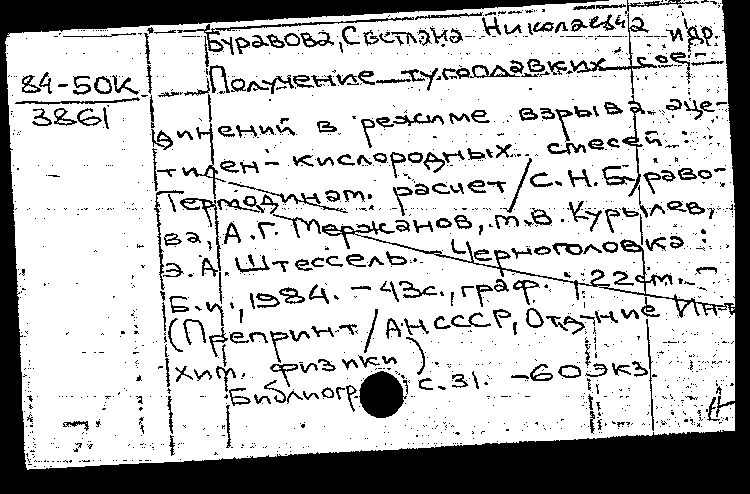 Буравова, Светлана Николаевна и др.
84-50К
3861
Получение тугоплавких сое-
динений в режиме взрыва аце-
тилен-кислородных смесей :
Термодинам. расчет / С.Н. Бураво-
ва, А.Г. Мержанов, Т.В. Курылев,
Э.А. Штессель. - Черноголовка :
Б.и., 1984. - 43с., граф. ; 22 см. -
(Препринт / АН СССР, Отд-ние Ин-т
хим. физики).
Библиогр. с. 31. - 60 экз.